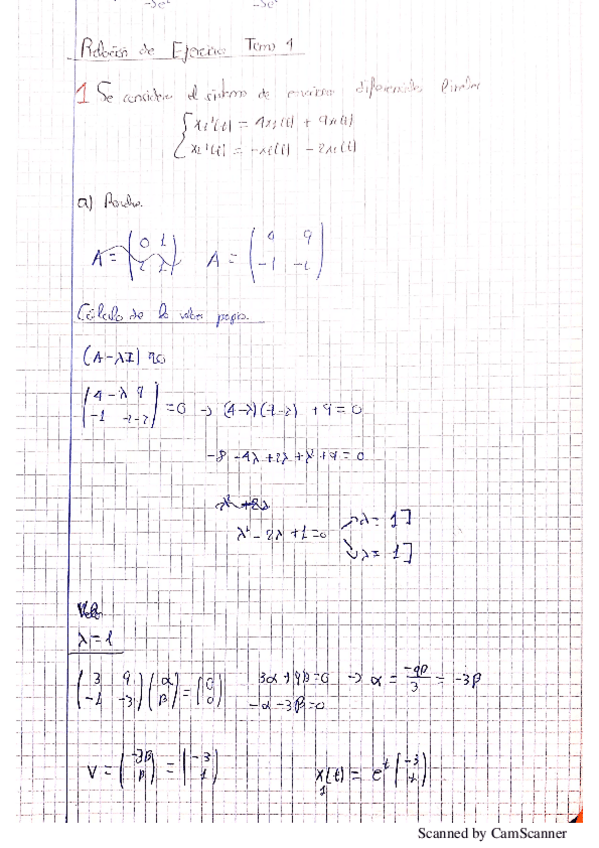 Relación de Ejercicios Tema 1
1 Se considera el sistema de ecuaciones diferenciales lineales
{ x₁'(t) = 4x₁(t) + 9x₂(t)
x₂'(t) = -x₁(t) - 2x₂(t)
a)
A = ( 0 1 A = ( 9
-1 )
Cálculo de valores propios.
(A-λI) = 0
| 4-λ 9 |
| -1 -2-λ | = 0 → (4-λ)(-2-λ) + 9 = 0
-8 - 4λ + 2λ + λ² + 9 = 0
λ² - 2λ + 1 = 0 λ = 1]
λ = 1]
λ = 1
( 3 9 ) ( α ) = ( 0 ) 3α + 9β = 0 → α = -9β/3 = -3β
( -1 -3 ) ( β ) ( 0 ) -α - 3β = 0
V = ( -3β ) = ( -3 ) x₁(t) = eᵗ ( -3 )
( β ) ( 1 ) ( 1 )
Scanned by CamScanner